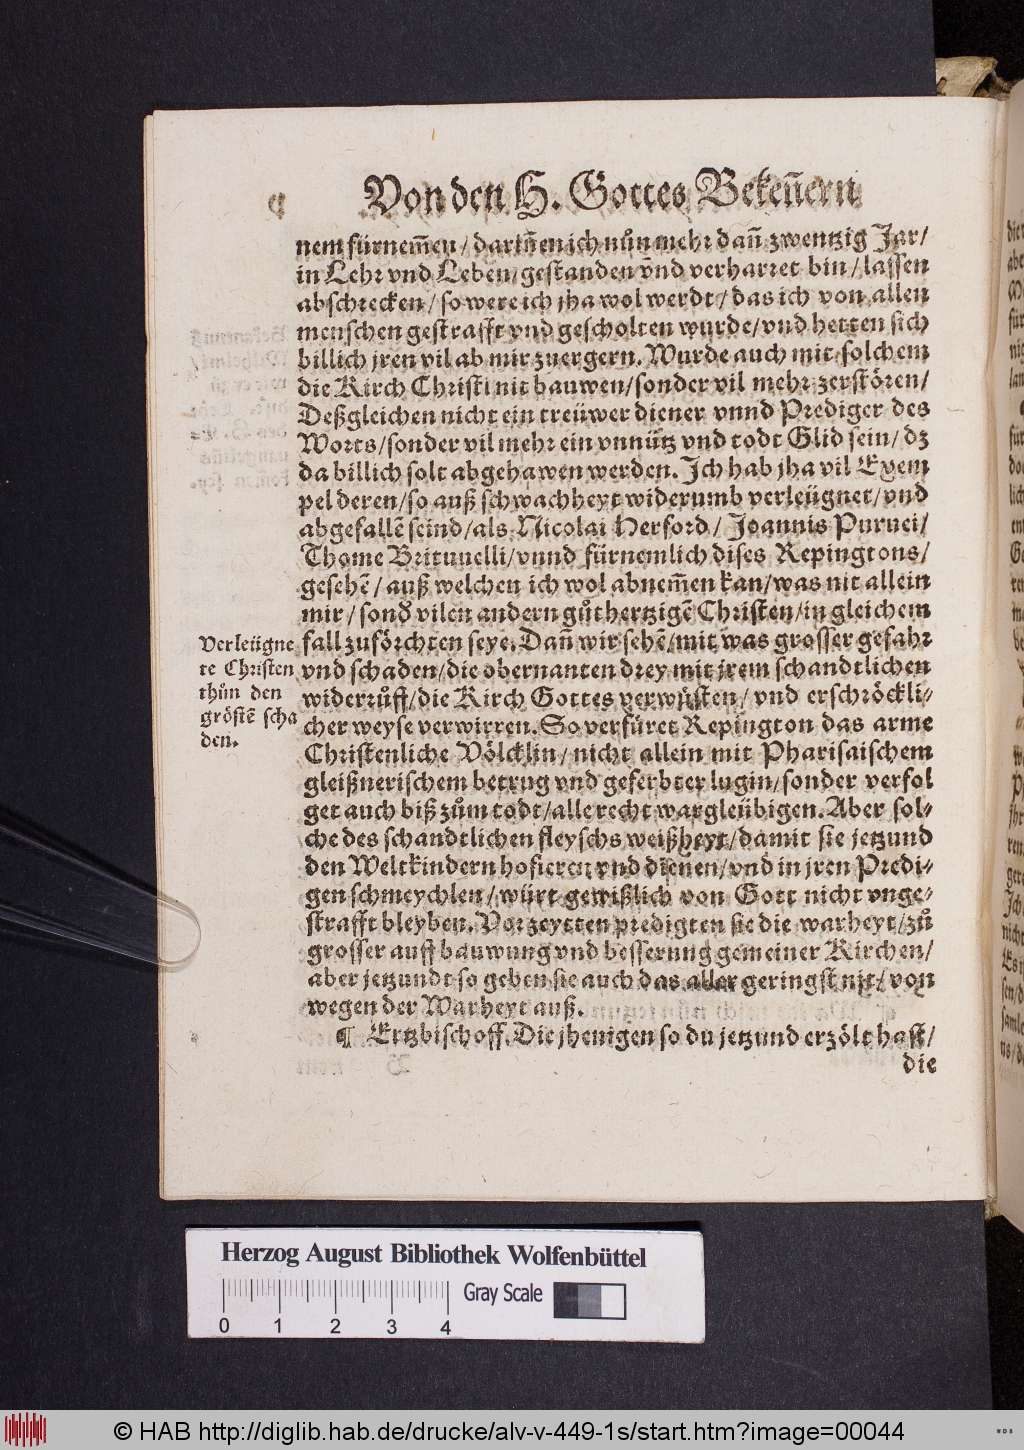 Von den H. Gottes Bekeñern
nem fürnem̃en / dariñen ich nůn mehr dañ zwentzig Jar /
in Lehr vnd Leben / gestanden vnd verharret bin / lassen
abschrecken / so were ich jha wol werdt / das ich von allen
menschen gestrafft vnd gescholten wurde / vnd hetten sich
billich jren vil ab mir zuergern. Wurde auch mit solchem
die Kirch Christi nit bauwen / sonder vil mehr zerstören /
Deßgleichen nicht ein treüwer diener vnnd Prediger des
Worts / sonder vil mehr ein vnnütz vnd todt Glid sein / dz
da billich solt abgehawen werden. Ich hab jha vil Exem
pel deren / so auß schwachheyt widerumb verleügnet / vnd
abgefallẽ seind / als Nicolai Herford / Joannis Puruei /
Thome Brituuelli / vnnd fürnemlich dises Repingtons /
gesehẽ / auß welchen ich wol abnem̃en kan / was nit allein
mir / sond' vilen andern gůthertzigẽ Christen / in gleichem
fall zuförchten seye. Dañ wir sehẽ / mit was grosser gefahr
vnd schaden / die obernanten drey mit jrem schandtlichen
widerrůff / die Kirch Gottes verwüsten / vnd erschröckli-
cher weyse verwirren. So verfüret Repington das arme
Christenliche Völcklin / nicht allein mit Pharisaischem
gleißnerischem betrug vnd geferbter lugin / sonder verfol
get auch biß zům todt / alle recht wargleübigen. Aber sol-
che des schandtlichen fleyschs weißheyt / damit sie jetzund
den Weltkindern hofieren vnd dienen / vnd in jren Predi-
gen schmeychlen / würt gewißlich von Gott nicht vnge-
strafft bleyben. Vorzeytten predigten sie die warheyt / zů
grosser auffbauwung vnd besserung gemeiner Kirchen /
aber jetzundt so geben sie auch das aller geringst nit / von
wegen der Warheyt auß.
¶ Ertzbischoff. Die jhenigen so du jetzund erzölt hast /
die
Verleügne
te Christen
thůn den
gröstẽ scha
den.
Herzog August Bibliothek Wolfenbüttel
Gray Scale
0 1 2 3 4
© HAB http://diglib.hab.de/drucke/alv-v-449-1s/start.htm?image=00044